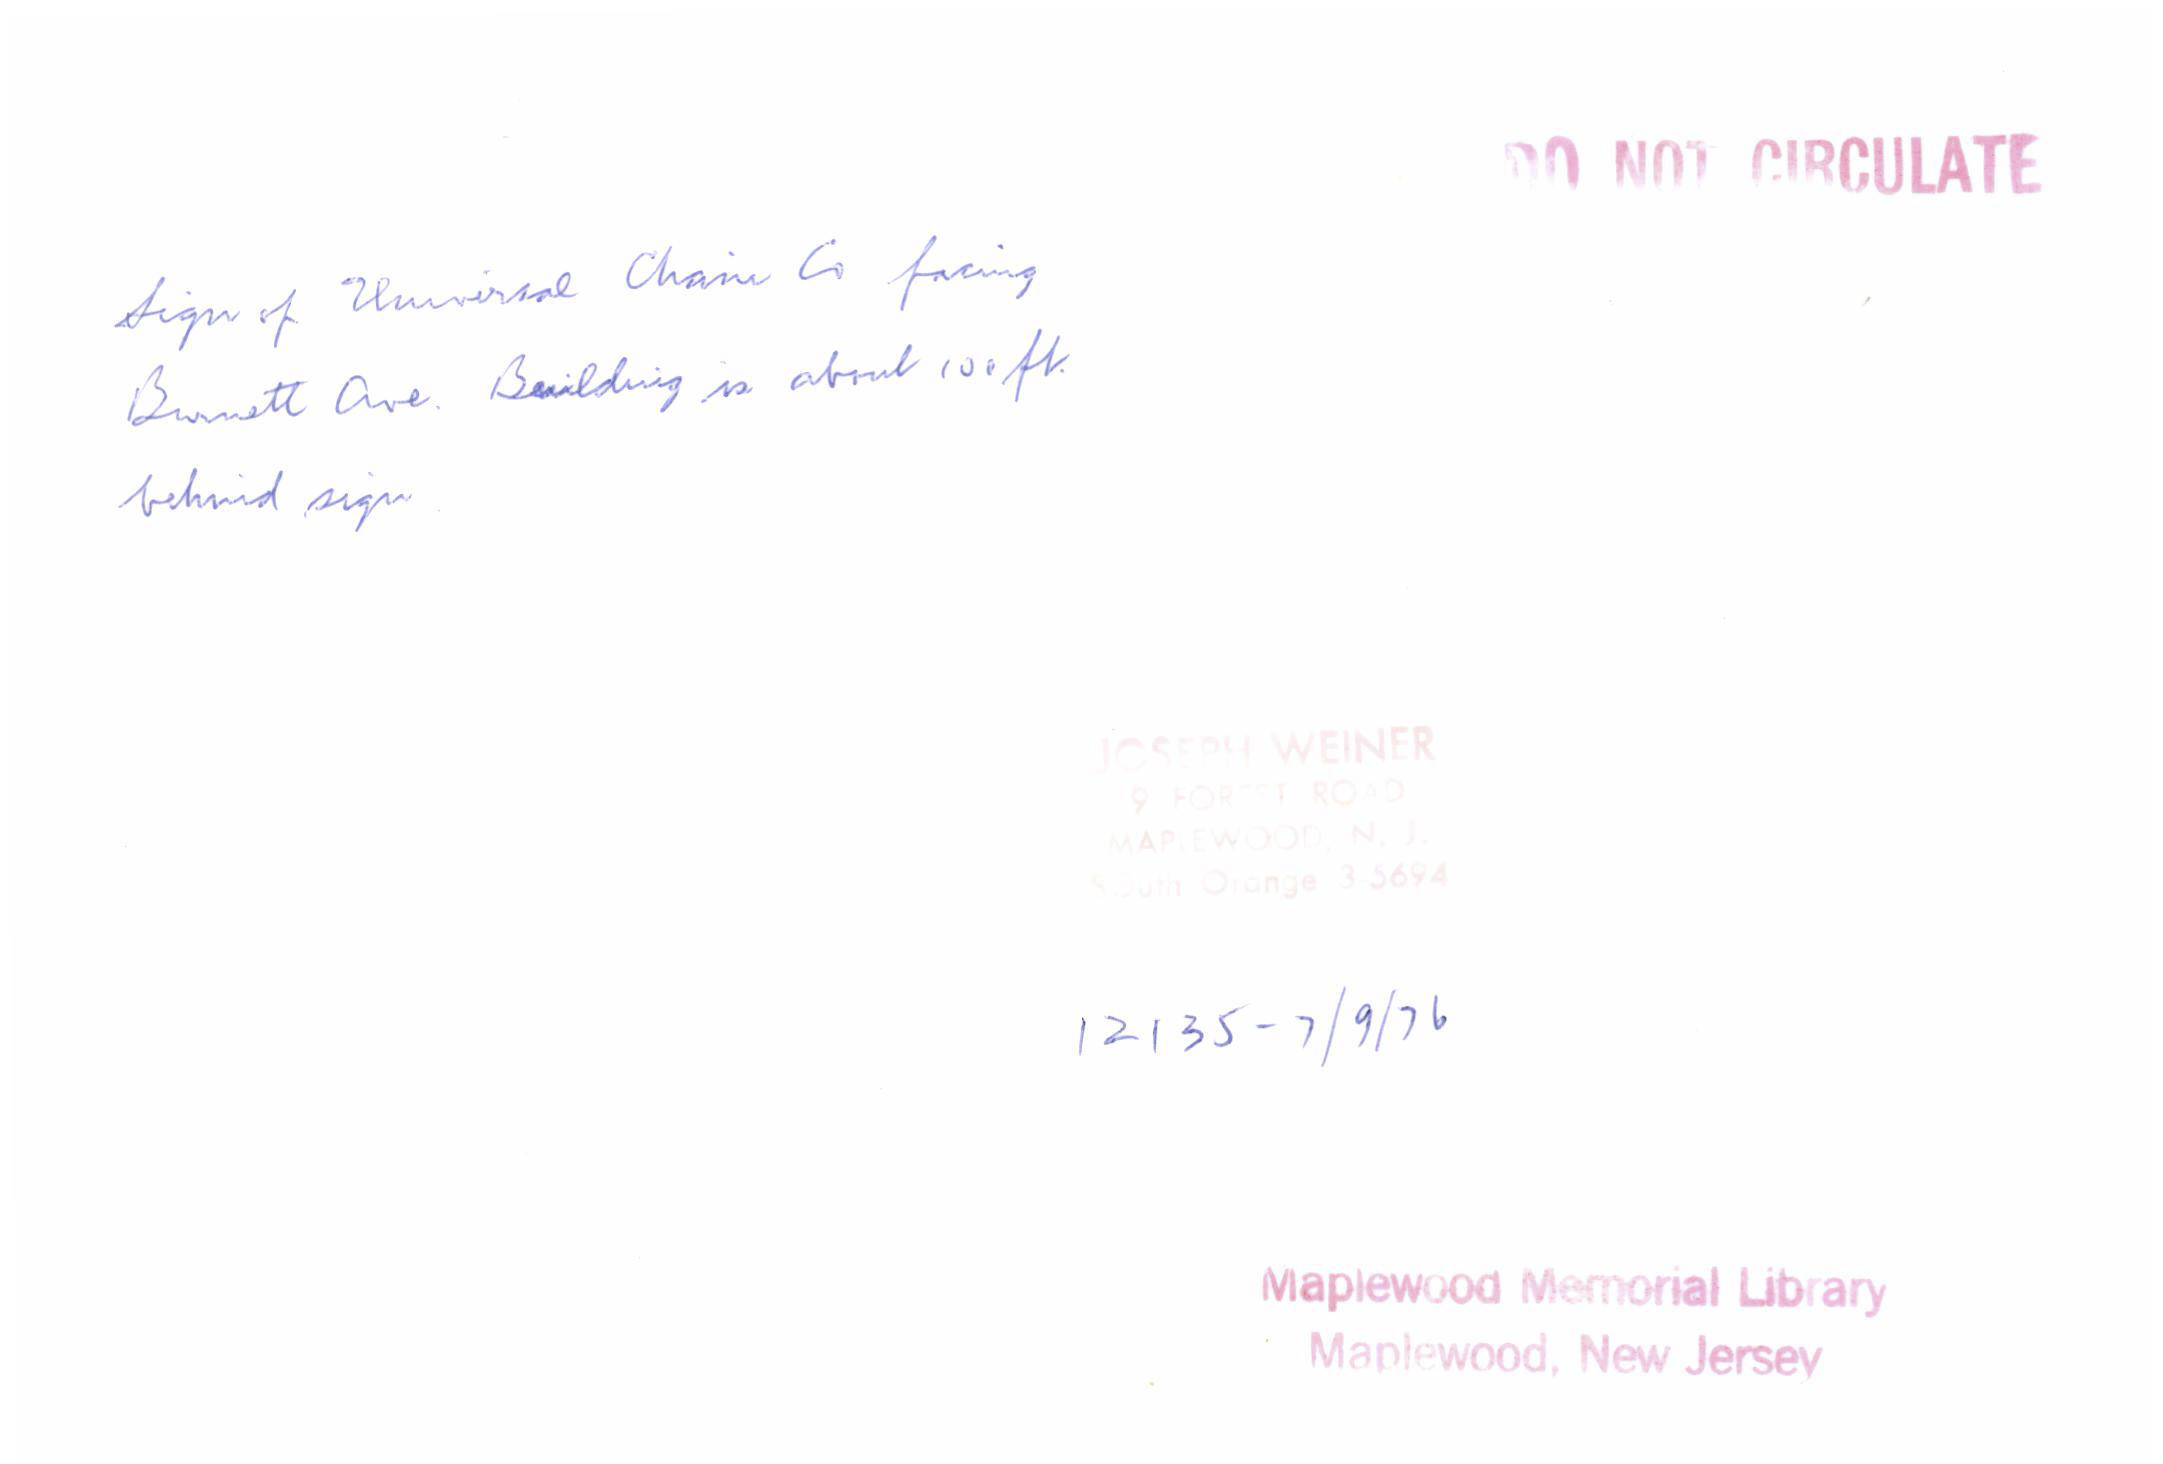 DO NOT CIRCULATE
Sign of Universal Chain Co facing
Burnett Ave. Building is about 100 ft.
behind sign
JOSEPH WEINER
9 FOREST ROAD
MAPLEWOOD, N. J.
SOuth Orange 3 5694
12135-7/9/76
Maplewood Memorial Library
Maplewood, New Jersey